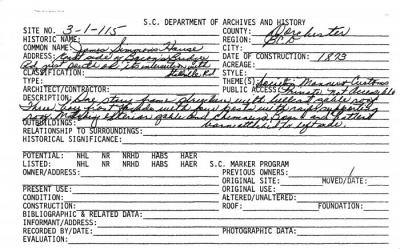 S.C. DEPARTMENT OF ARCHIVES AND HISTORY
SITE NO. 3-1-115 COUNTY: Dorchester
HISTORIC NAME: REGION: BCD
COMMON NAME: James Simmons House CITY:
ADDRESS: East side of Bacon's Bridge DATE OF CONSTRUCTION: 1893
Rd just of its with ACREAGE:
CLASSIFICATION: Rd STYLE:
TYPE: THEME(S): Society Manners Customs
ARCHITECT/CONTRACTOR: PUBLIC ACCESS: Private not Accessible
DESCRIPTION: One story frame with gable roof
Three bay first with four posts with supporting
roof. Masonry exterior gable end chimneys. Board and batted
OUTBUILDINGS: barn to left side.
RELATIONSHIP TO SURROUNDINGS:
HISTORICAL SIGNIFICANCE:
POTENTIAL: NHL NR NRHD HABS HAER S.C. MARKER PROGRAM
LISTED: NHL NR NRHD HABS HAER PREVIOUS OWNERS:
OWNER/ADDRESS: ORIGINAL SITE: MOVED/DATE:
PRESENT USE: ORIGINAL USE:
CONDITION: ALTERED/UNALTERED:
CONSTRUCTION: ROOF: FOUNDATION:
BIBLIOGRAPHIC & RELATED DATA:
INFORMANT/ADDRESS:
RECORDED BY/DATE: PHOTOGRAPHIC DATA:
EVALUATION: